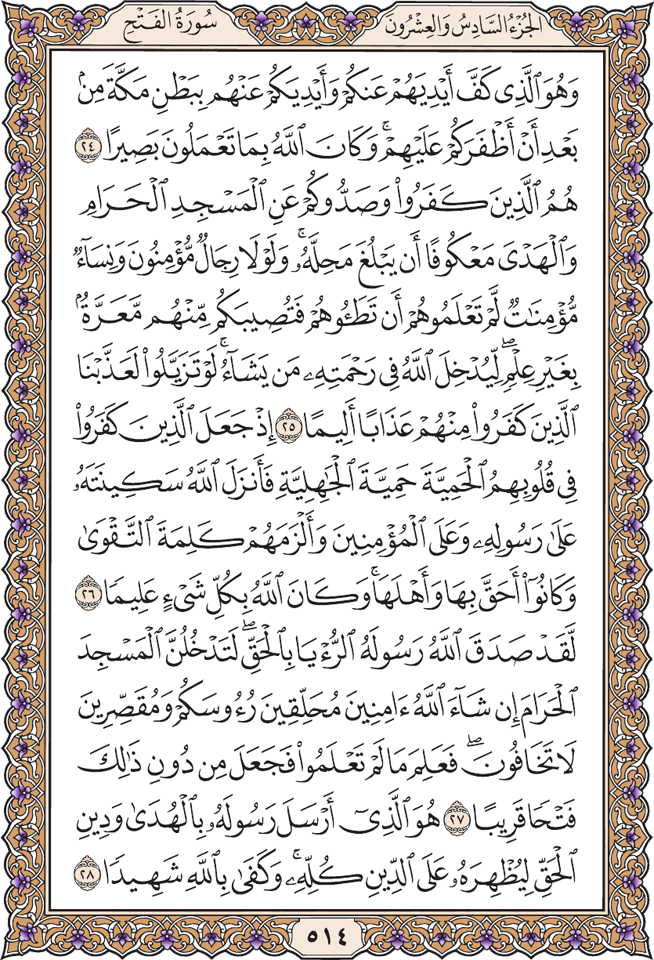 الجُزْءُ السَّادِسُ وَالعِشْرُونَ سُورَةُ الفَتْحِ
وَهُوَ ٱلَّذِي كَفَّ أَيْدِيَهُمْ عَنكُمْ وَأَيْدِيَكُمْ عَنْهُم بِبَطْنِ مَكَّةَ مِنۢ
بَعْدِ أَنْ أَظْفَرَكُمْ عَلَيْهِمْۚ وَكَانَ ٱللَّهُ بِمَا تَعْمَلُونَ بَصِيرًا ٢٤
هُمُ ٱلَّذِينَ كَفَرُواْ وَصَدُّوكُمْ عَنِ ٱلْمَسْجِدِ ٱلْحَرَامِ
وَٱلْهَدْيَ مَعْكُوفًا أَن يَبْلُغَ مَحِلَّهُۥۚ وَلَوْلَا رِجَالٌ مُّؤْمِنُونَ وَنِسَآءٌ
مُّؤْمِنَٰتٌ لَّمْ تَعْلَمُوهُمْ أَن تَطَـُٔوهُمْ فَتُصِيبَكُم مِّنْهُم مَّعَرَّةُۢ
بِغَيْرِ عِلْمٍۖ لِّيُدْخِلَ ٱللَّهُ فِي رَحْمَتِهِۦ مَن يَشَآءُۚ لَوْ تَزَيَّلُواْ لَعَذَّبْنَا
ٱلَّذِينَ كَفَرُواْ مِنْهُمْ عَذَابًا أَلِيمًا ٢٥ إِذْ جَعَلَ ٱلَّذِينَ كَفَرُواْ
فِي قُلُوبِهِمُ ٱلْحَمِيَّةَ حَمِيَّةَ ٱلْجَٰهِلِيَّةِ فَأَنزَلَ ٱللَّهُ سَكِينَتَهُۥ
عَلَىٰ رَسُولِهِۦ وَعَلَى ٱلْمُؤْمِنِينَ وَأَلْزَمَهُمْ كَلِمَةَ ٱلتَّقْوَىٰ
وَكَانُوٓاْ أَحَقَّ بِهَا وَأَهْلَهَاۚ وَكَانَ ٱللَّهُ بِكُلِّ شَيْءٍ عَلِيمًا ٢٦
لَّقَدْ صَدَقَ ٱللَّهُ رَسُولَهُ ٱلرُّءْيَا بِٱلْحَقِّۖ لَتَدْخُلُنَّ ٱلْمَسْجِدَ
ٱلْحَرَامَ إِن شَآءَ ٱللَّهُ ءَامِنِينَ مُحَلِّقِينَ رُءُوسَكُمْ وَمُقَصِّرِينَ
لَا تَخَافُونَۖ فَعَلِمَ مَا لَمْ تَعْلَمُواْ فَجَعَلَ مِن دُونِ ذَٰلِكَ
فَتْحًا قَرِيبًا ٢٧ هُوَ ٱلَّذِيٓ أَرْسَلَ رَسُولَهُۥ بِٱلْهُدَىٰ وَدِينِ
ٱلْحَقِّ لِيُظْهِرَهُۥ عَلَى ٱلدِّينِ كُلِّهِۦۚ وَكَفَىٰ بِٱللَّهِ شَهِيدًا ٢٨
٥١٤